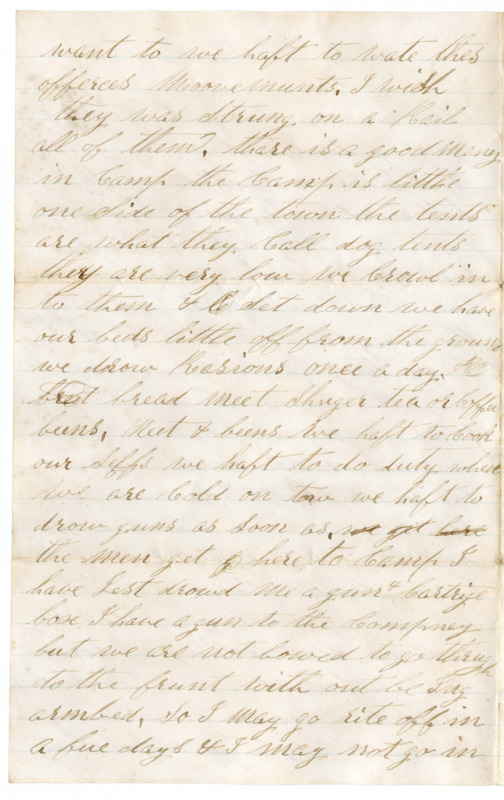 want to we haft to wate thes
offerces Moovemunts. I wish
they was Strung on a Rail
all of them. thare is a good meney
in Camp the Camp is little
one Side of the town the tents
are what they Call dog tents
they are very low we Crawl in
to them & Set down we have
our beds little off from the groun
we drow Rasions once a day.
bread meet Shuger tea or Coffee
beens, Meet & beens we haft to Cook
our selfs we haft to do duty when
we are Cold on tow we haft to
drow guns as soon as, we get here
the men get here to Camp I
have Jest drowd me a gun & Cartrige
box I have a gun to the Compney
but we are not bowed to go throug
to the frunt with out be Ing
armbed, So I may go rite off in
a fue days & I may not go in